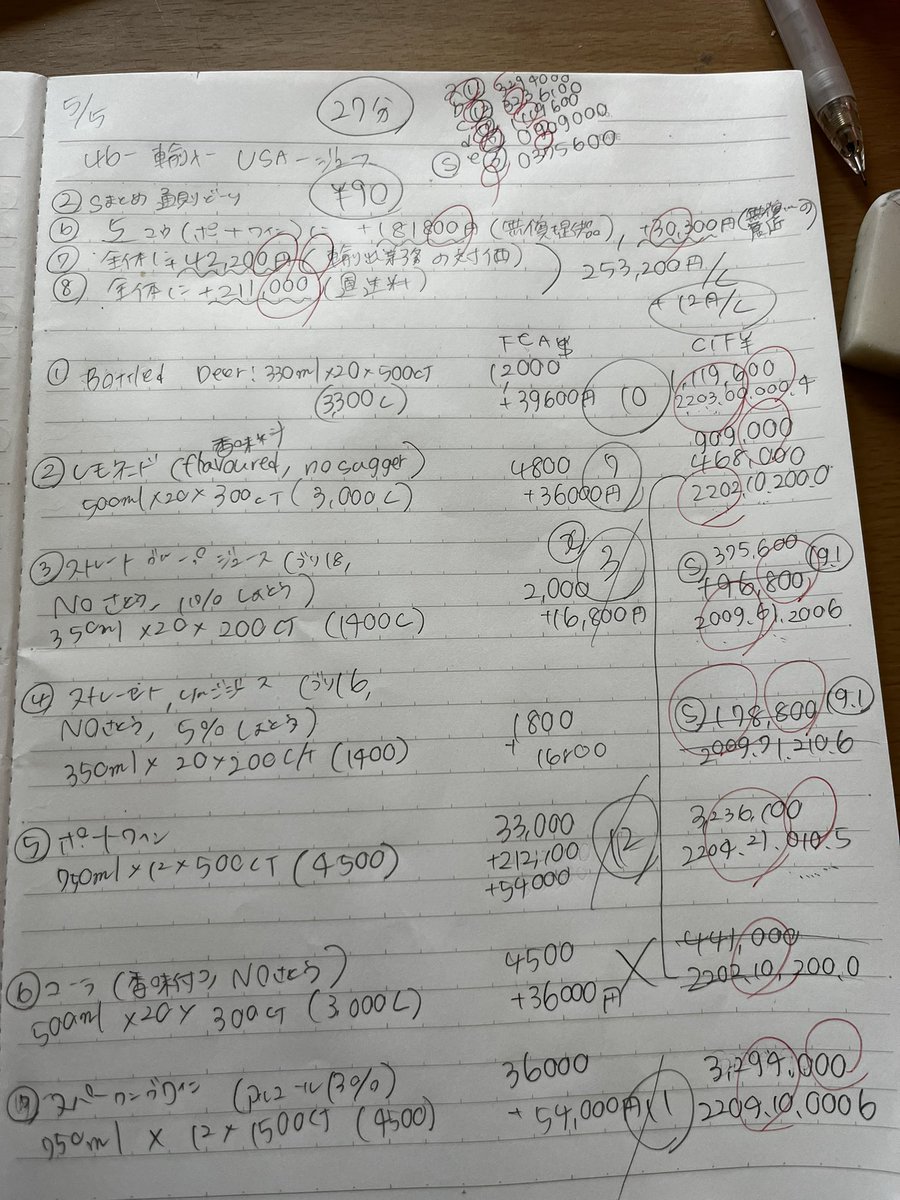 5/5
27分
a① 3294000
b⑫ 3236100
1119600
0909000
Ⓢ e 0375600
46- 輸入- USA-ジュース
② Sまとめ 原則どーり
¥90
⑥ 5 (ポートワイン)に +181800円 +30,300円
⑦ 全体に+42,200円 の対価)
253,200円/L
⑧ 全体に +211,000 (運送料)
+12円/L
FCA$ CIF¥
① Bottled Beer! 330ml×20×500CT 12000 1,119,600
(3,300L) +39600円 10 2203.00.000.4
香味料
909,000
② レモネード (flavoured, no sugger) 4800 9 468,000
500ml×20×300CT (3,000L) +36000円 2202.10.200.0
③ ストレート グレープジュース (ブリ18, 3 Ⓢ 375,600 9.1
NOさとう, 10% しょとう) 2,000 196,800
350ml×20×200CT (1400L) +16,800円 2009.61.2006
④ (ブリ16, Ⓢ 178,800 9.1
NOさとう, 5% しょとう) 1800 2009.71.210.6
350ml×20×200CT (1400) +16800
⑤ ポートワイン 33,000 12 3,236,100
750ml×12×500CT (4500) +212,100 2204.21.010.5
+54000
⑥ コーラ (香味付き, NOさとう) 4500 × 441,000
500ml×20× 300CT (3,000L) +36000円 2202.10.200.0
スパークリングワイン (アルコール13%) 36000 3,294,000
750ml × 12× 500CT (4500) +54,000円 11 2204.10.0006